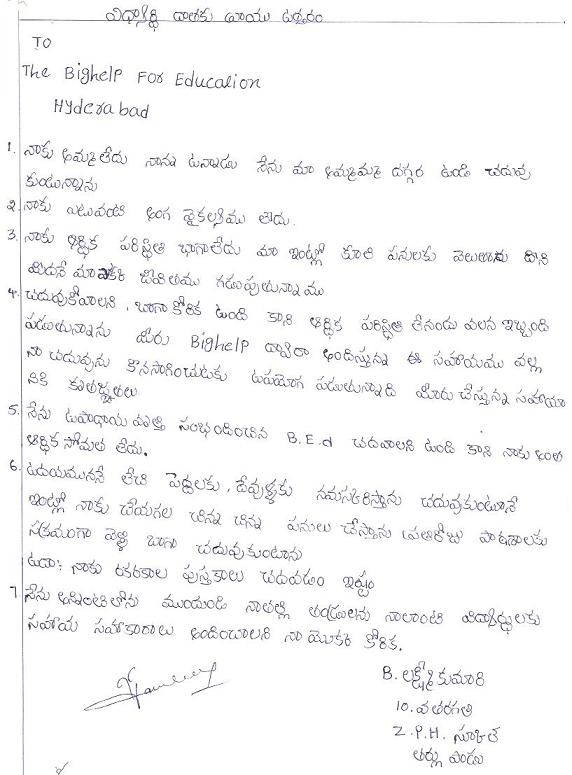 విద్యార్థి దాతకు వ్రాయు ఉత్తరం
TO
The Bighelp For Education
Hyderabad
1. నాకు అమ్మ లేదు నాన్న ఉన్నాడు నేను మా అమ్మమ్మ దగ్గర ఉండి చదువు
కుంటున్నాను
2. నాకు ఎటువంటి అంగ వైకల్యము లేదు.
3. నాకు ఆర్థిక పరిస్థితి బాగాలేదు మా ఇంట్లో కూలి పనులకు వెలుతారు దాని
మీదనే మా జీవితము గడుపుతున్నాము
4. చదువుకోవాలని, బాగా కోరిక ఉంది కాని ఆర్థిక పరిస్థితి లేనందు వలన ఇబ్బంది
పడుతున్నాను మీరు Bighelp ద్వారా అందిస్తున్న ఈ సహాయము వల్ల
నా చదువును కొనసాగించుటకు ఉపయోగ పడుతున్నాది మీరు చేస్తున్న సహాయా
నికి కృతజ్ఞతలు
5. నేను ఉపాధ్యాయ వృత్తి సంభందించిన B.E.d చదవాలని ఉంది కాని నాకు అంత
ఆర్థిక సోమత లేదు.
6. ఉదయమునే లేచి పెద్దలకు, దేవుళ్ళకు నమస్కరిస్తాను చదువుకుంటూనే
ఇంట్లో నాకు చేయగల చిన్న చిన్న పనులు చేస్తాను ప్రతిరోజు పాఠశాలకు
సక్రమంగా వెళ్ళి బాగా చదువుకుంటాను
ఉదా: నాకు రకరకాల పుస్తకాలు చదవడం ఇష్టం
7 నేను అన్నింటిలోను ముందుండి నాతల్లి తండ్రులను నాలాంటి విద్యార్థులకు
సహాయ సహకారాలు అందించాలని నా యొక్క కోరిక.
B. లక్ష్మీకుమారి
10. వతరగతి
Z.P.H. స్కూల్